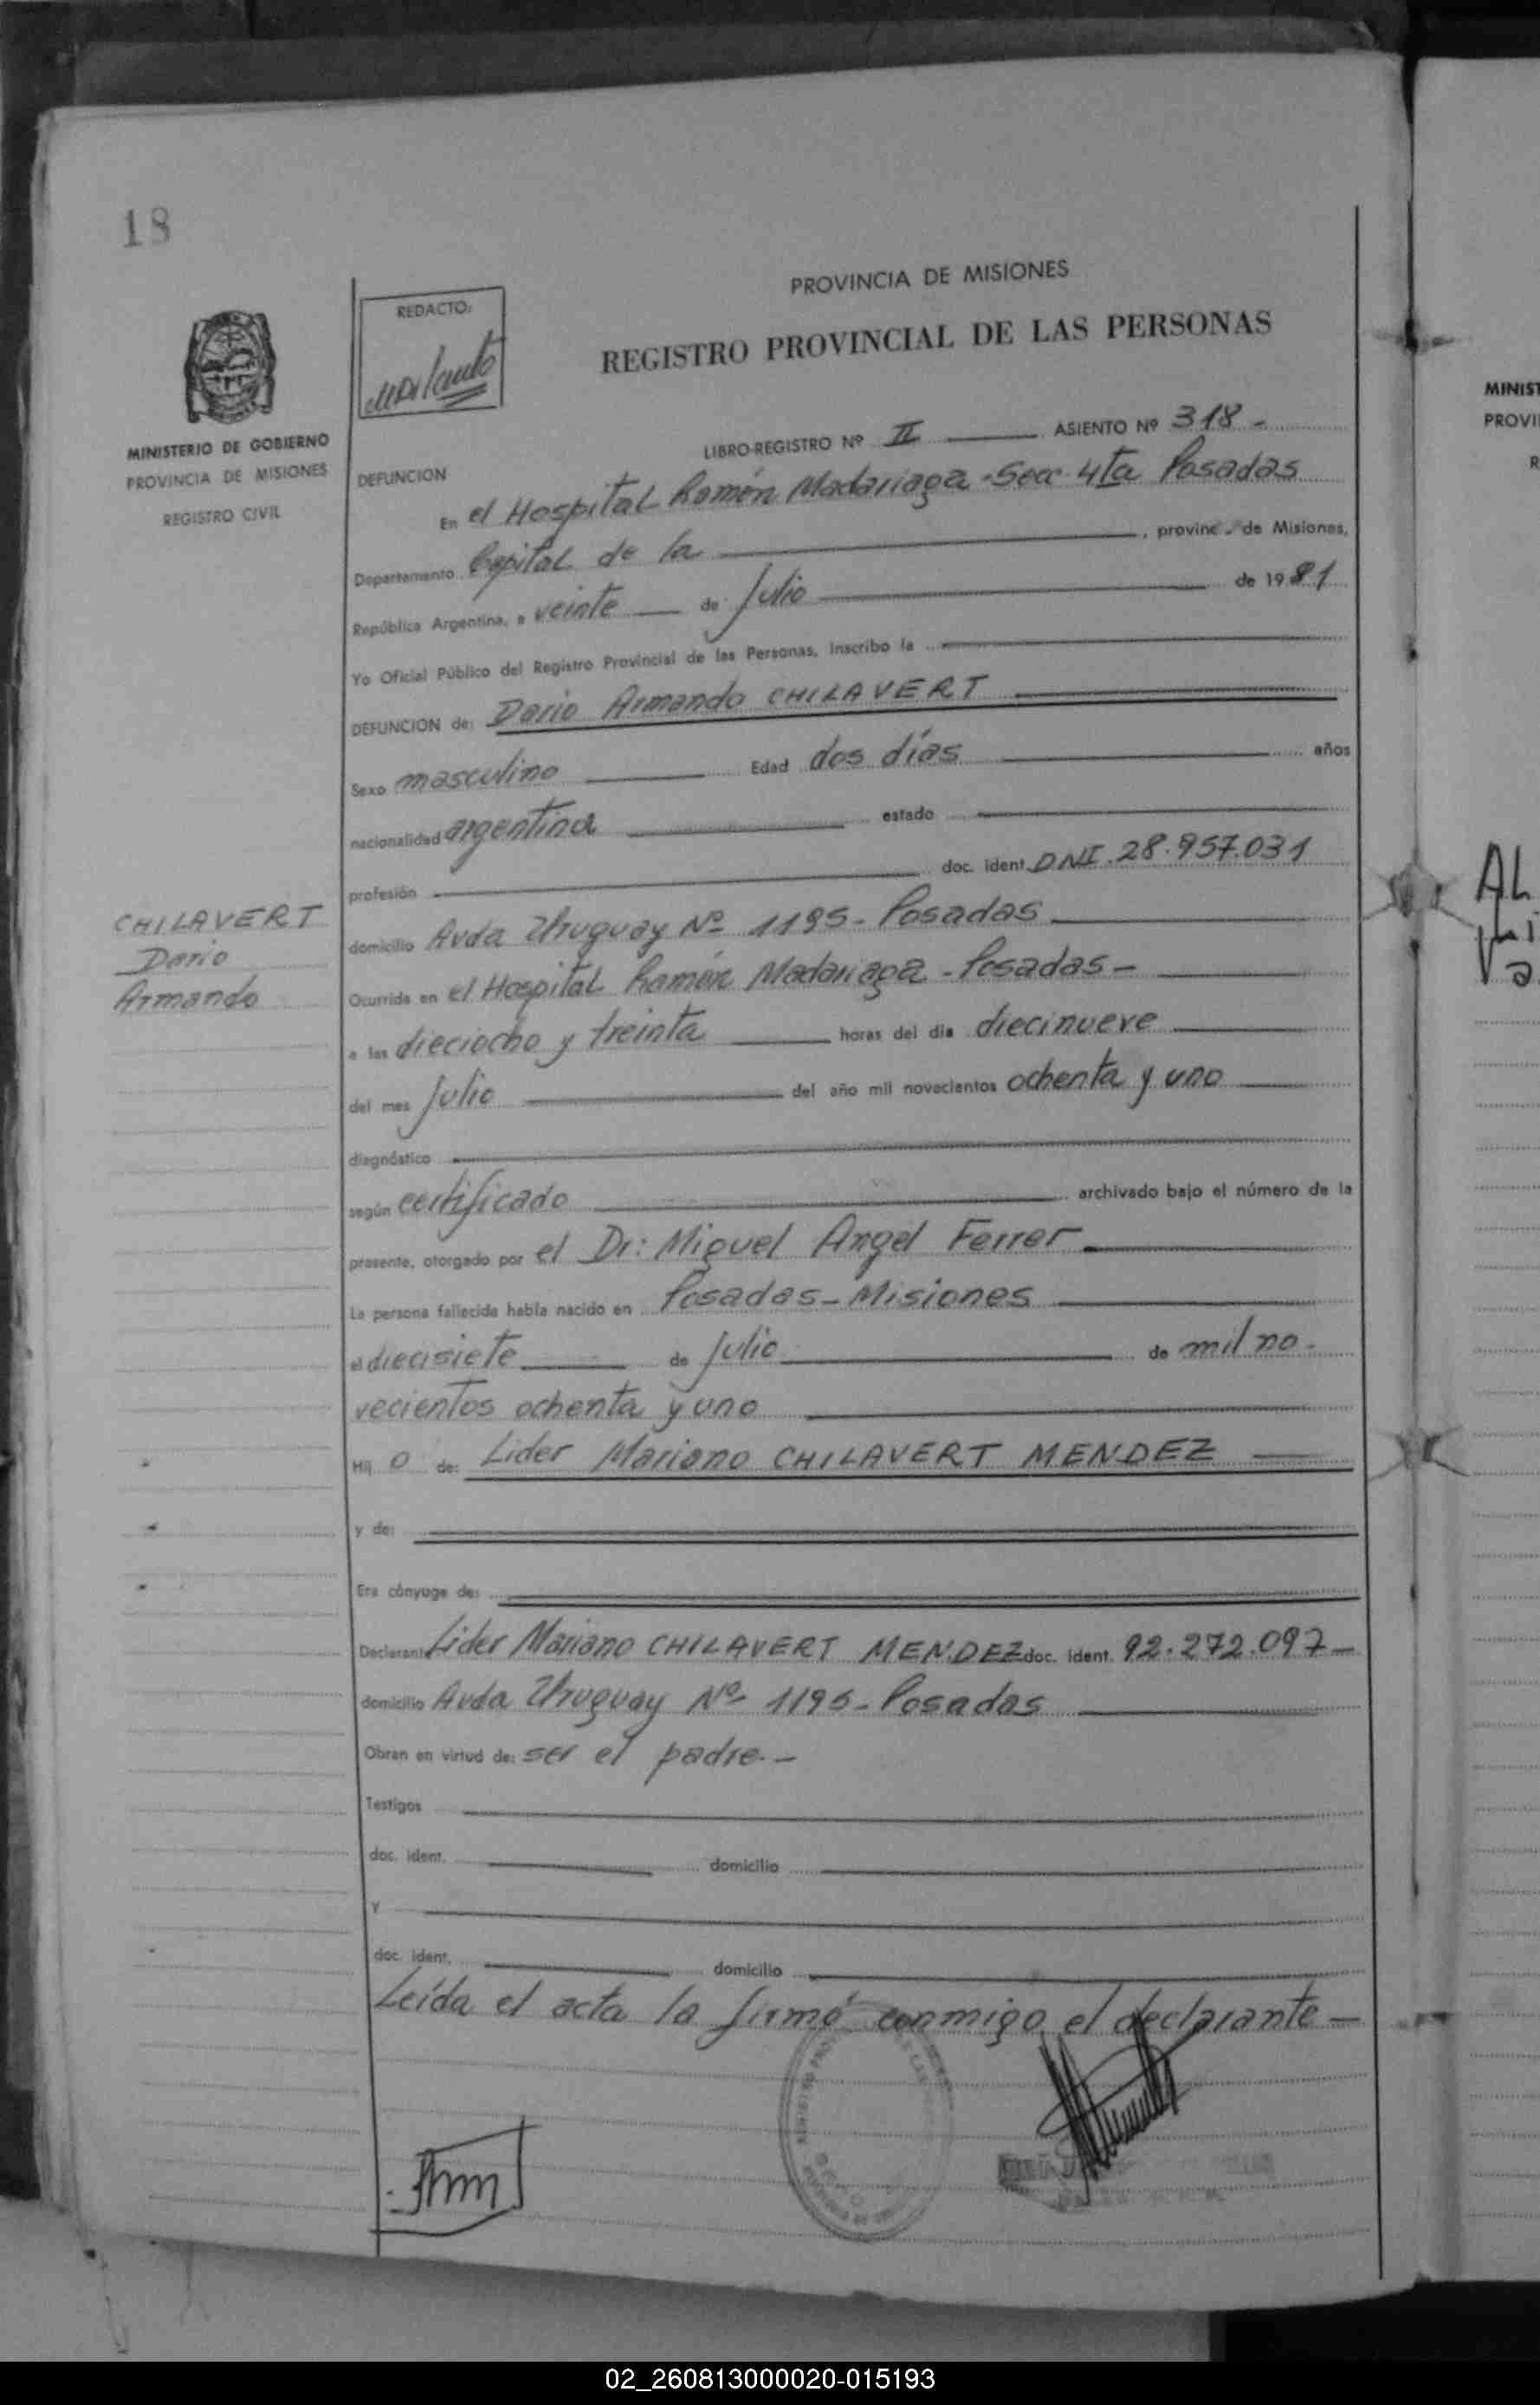 18
PROVINCIA DE MISIONES
REGISTRO PROVINCIAL DE LAS PERSONAS
REDACTO:
MINISTERIO DE GOBIERNO
PROVINCIA DE MISIONES
REGISTRO CIVIL
LIBRO-REGISTRO Nº II ASIENTO Nº 318-
DEFUNCION
En el Hospital Ramón Madariaga - Secc 4ta Posadas
Departamento Capital de la , provinc. de Misiones,
República Argentina, a veinte de Julio de 1981
Yo Oficial Público del Registro Provincial de las Personas, Inscribo la
DEFUNCION de: Dario Armando CHILAVERT
Sexo masculino Edad dos días años
nacionalidad argentina estado
profesión doc. ident. DNI. 28.957.031
CHILAVERT
Dario
Armando
domicilio Avda Uruguay Nº 1195 - Posadas
Ocurrida en el Hospital Ramón Madariaga - Posadas -
a las dieciocho y treinta horas del día diecinueve
del mes Julio del año mil novecientos ochenta y uno
diagnóstico
según certificado archivado bajo el número de la
presente, otorgado por el Dr: Miguel Angel Ferrer
La persona fallecida había nacido en Posadas - Misiones
el diecisiete de Julio de mil no-
vecientos ochenta y uno
Hij o de: Lider Mariano CHILAVERT MENDEZ
y de:
Era cónyuge de:
Declarante Lider Mariano CHILAVERT MENDEZ doc. ident. 92.272.097-
domicilio Avda Uruguay Nº 1195 - Posadas
Obran en virtud de: ser el padre. -
Testigos
doc. ident. domicilio
y
doc. ident. domicilio
Leída el acta la firmó conmigo el declarante -
MINIST
PROVI
R
AL
Li
Va
02_260813000020-015193